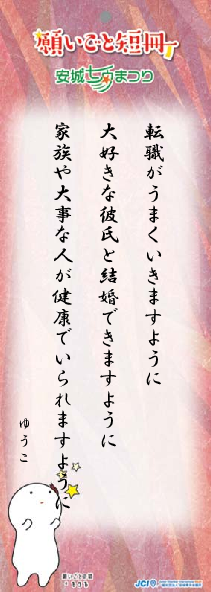 願いごと短冊
安城七夕まつり
転職がうまくいきますように
大好きな彼氏と結婚できますように
家族や大事な人が健康でいられますように
ゆうこ
JCI